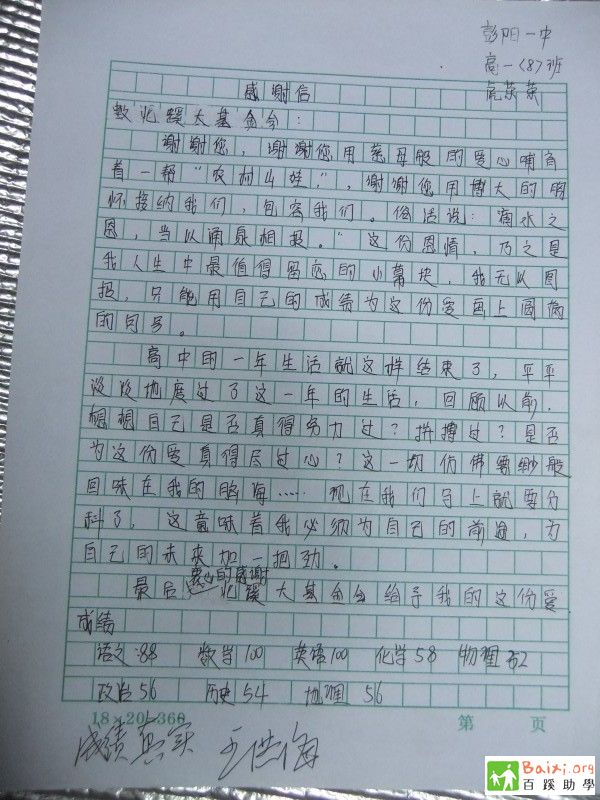 彭阳一中
高一〈8〉班
高英英
感谢信
致北暖大基金会:
谢谢您,谢谢您用慈母般的爱心哺育
着一帮“农村山娃”,谢谢您用博大的胸
怀接纳我们,包容我们。俗话说:滴水之
恩,当以涌泉相报。”这份恩情,乃之是
我人生中最值得留恋的小幕块,我无以回
报,只能用自己的成绩为这份爱画上圆满
的句号。
高中的一年生活就这样结束了,平平
淡淡地度过了这一年的生活,回顾以前,
想想自己是否真得努力过?拼搏过?是否
为这份爱真得尽过心?这一切仿佛缥缈般
回味在我的脑海……现在我们马上就要分
科了,这意味着我必须为自己的前途,为
自己的未来加一把劲。
衷心的感谢
最后 北暖大基金会给予我的这份爱
成绩
语文:88 数学100 英语100 化学58 物理52
政治56 历史54 地理 56
18×20=360 第 页
成绩真实 王世海
Baixi.org
百蹊助學